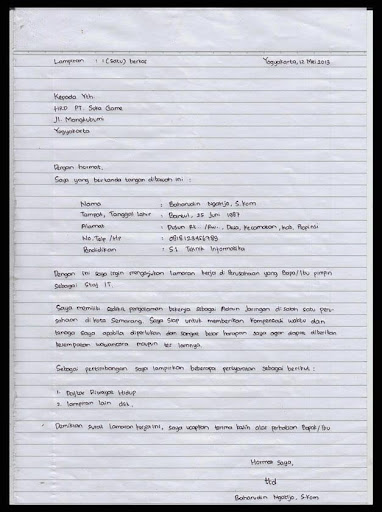 Lampiran : 1 (satu) berkas Yogyakarta, 12 Mei 2013
Kepada Yth.
HRD PT. Suta Game
Jl. Mangkubumi
Yogyakarta
Dengan hormat,
Saya yang bertanda tangan dibawah ini :
Nama : Baharudin Ngatijo, S.Kom
Tempat, Tanggal lahir : Bantul, 25 Juni 1987
Alamat : Dusun Rt.. /Rw.. Desa, Kecamatan, Kab, Propinsi
No. Telp /Hp : 0818123456789
Pendidikan : S.1 Teknik Informatika
Dengan ini saya ingin mengajukan lamaran kerja di Perusahaan yang Bapak/Ibu pimpin
sebagai Staf IT.
Saya memiliki sedikit pengalaman bekerja sebagai Admin Jaringan di salah satu peru-
sahaan di kota Semarang. Saya siap untuk memberikan kompensasi waktu dan
tenaga saya apabila diperlukan dan sangat besar harapan saya agar dapat diberikan
kesempatan wawancara maupun tes lainnya.
Sebagai pertimbangan saya lampirkan beberapa persyaratan sebagai berikut :
1. Daftar Riwayat Hidup
2. lampiran lain dst.
Demikian surat lamaran kerja ini, saya ucapkan terima kasih atas perhatian Bapak/Ibu
Hormat Saya,
ttd
Baharudin Ngatijo, S.Kom